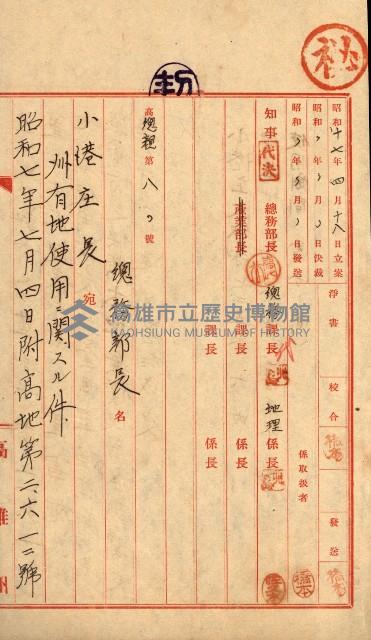 秘
昭和十七年四月十八日立案 淨書 校合 發送
昭和 年 月 日決裁
昭和 年 月 日發送 係取扱者
知事 代決 總務部長 總務課長 地理係長
產業部長 課長 係長
課長 係長
高總親第八 號
總務部長名
小港庄長 宛
州有地使用関スル件
昭和七年七月四日附高地第二、六一二號
高雄州
高雄市立歷史博物館
KAOHSIUNG MUSEUM OF HISTORY